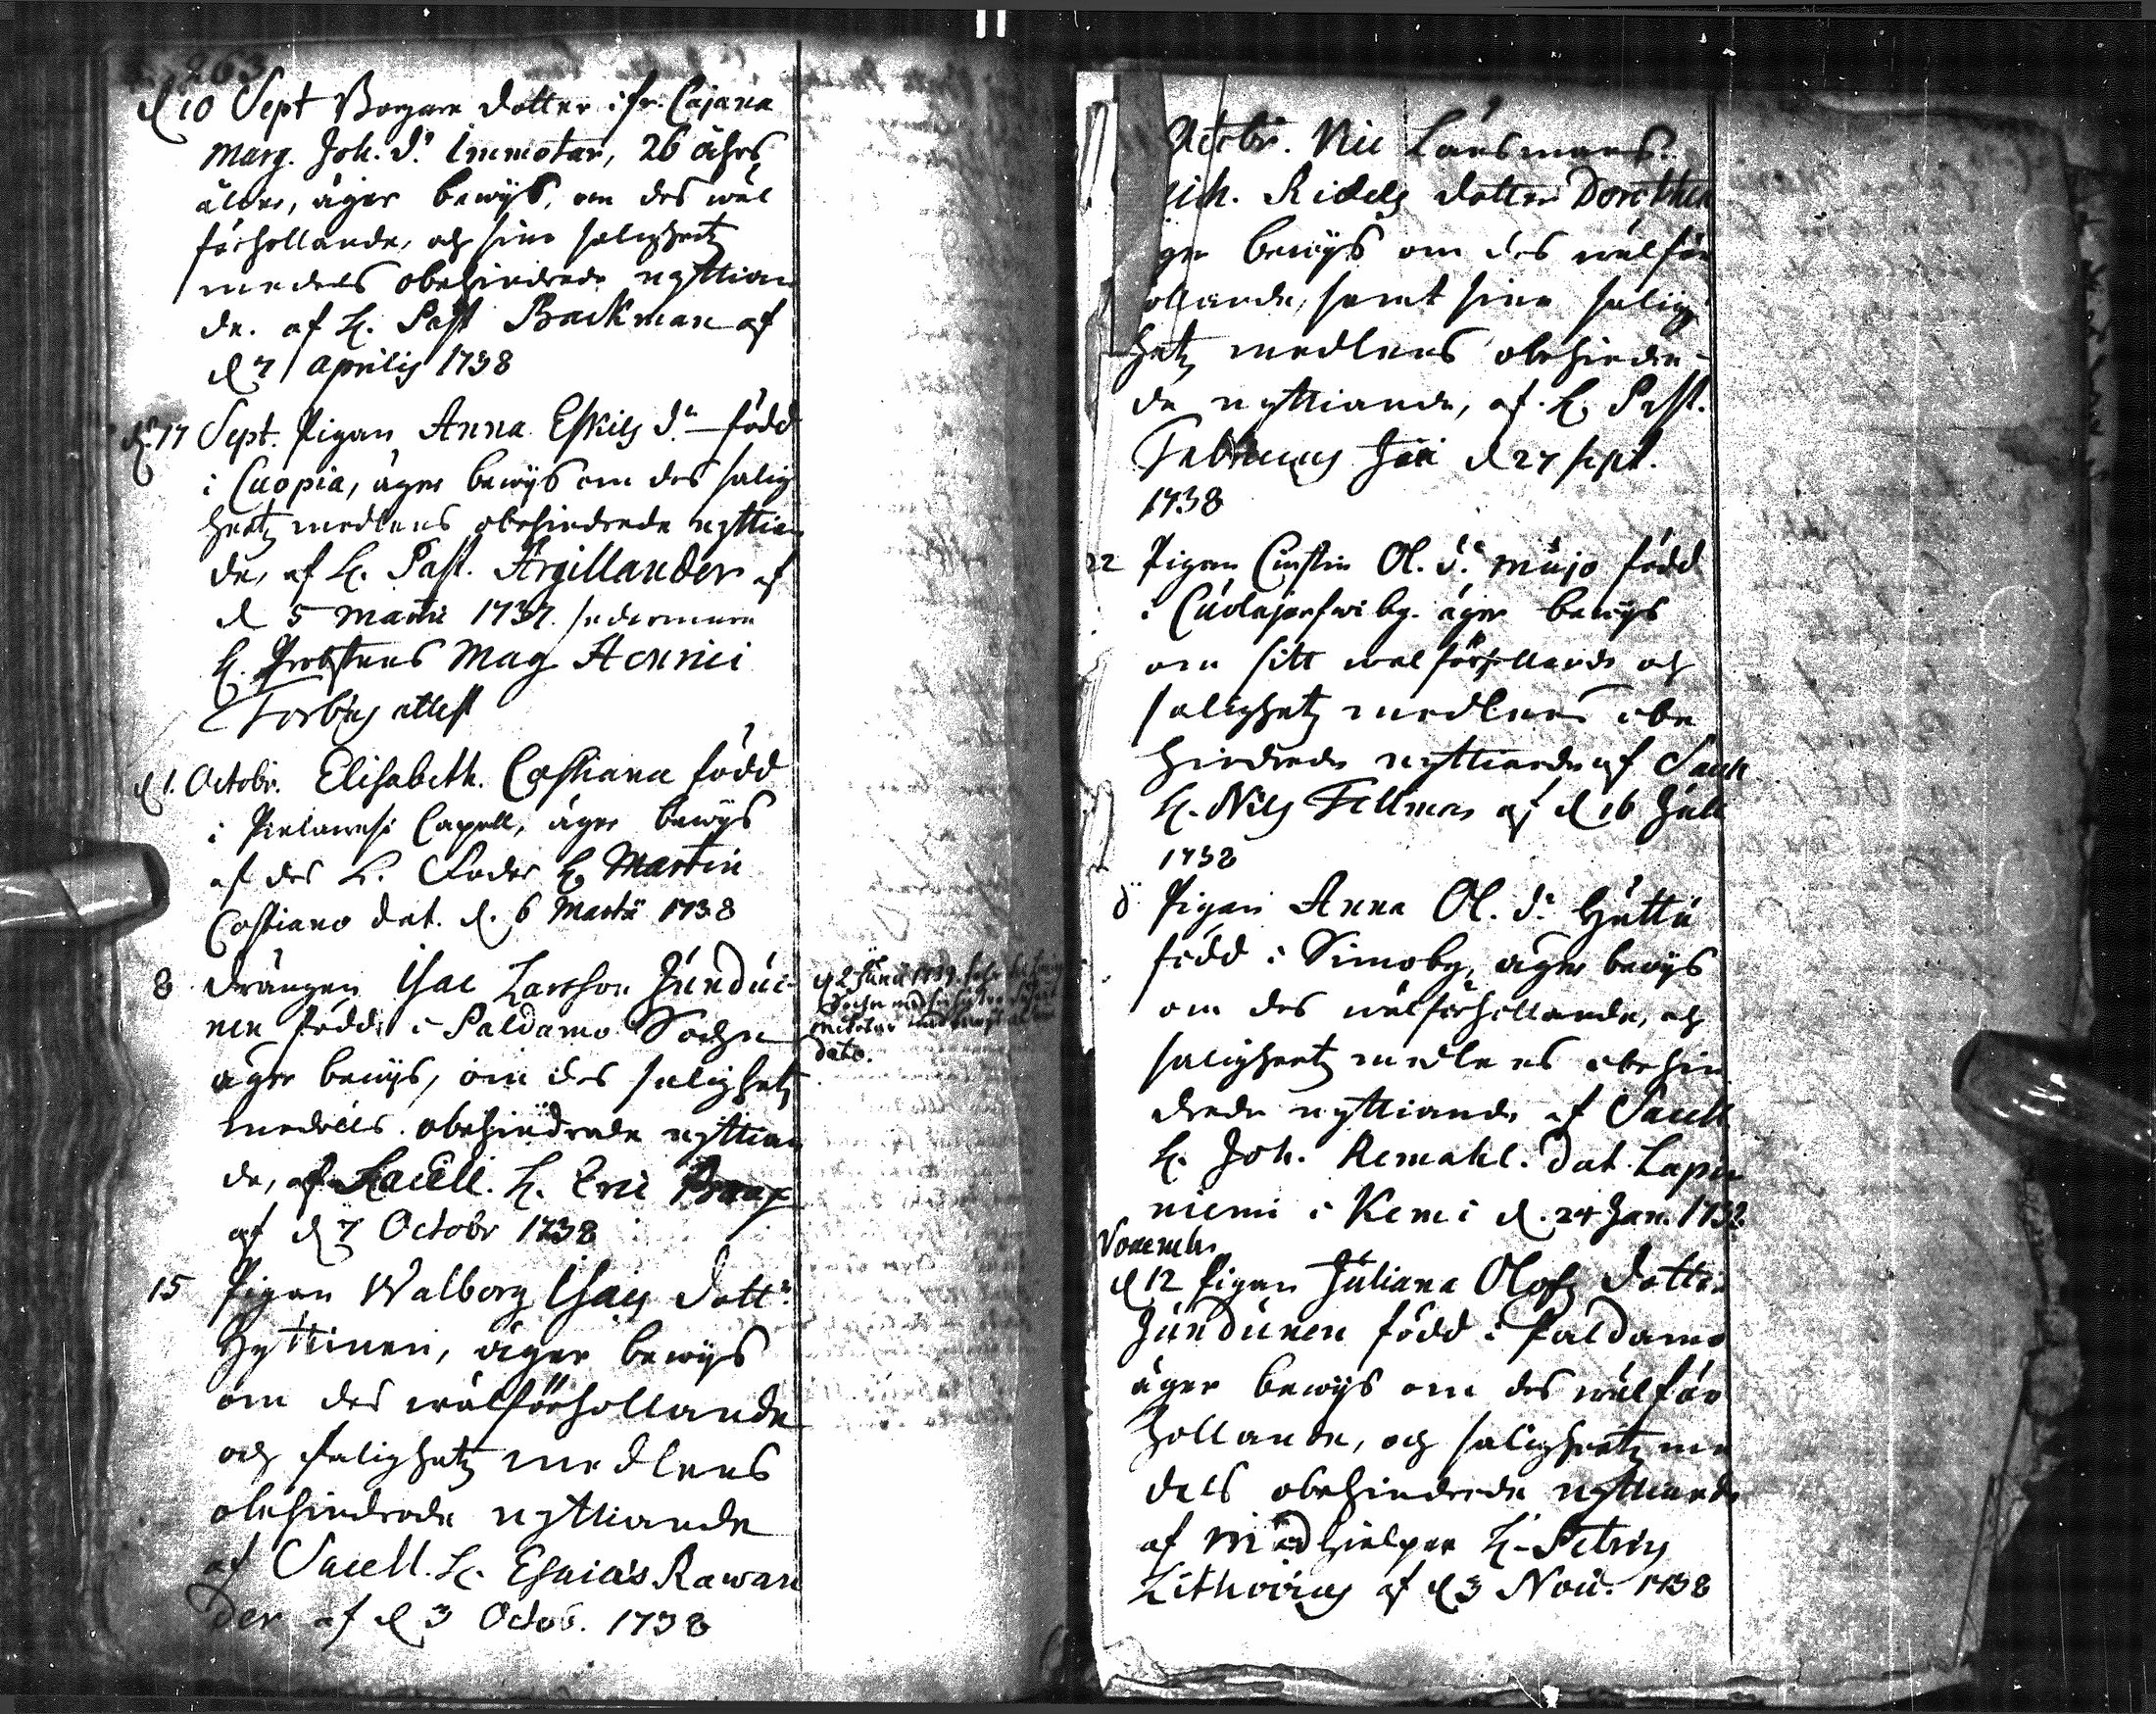 d 10 Sept Borgare dotter ifr. Cajana
Marg. Joh. d:r Immotar, 26 åhrs
ålder, äger bewijs, om des wäl
förhollande, och sine salighetz
medels obehindrade nyttian
de. af H. Past Backman af
d 7 Aprilis 1738
d. 17 Sept. Pigan Anna Eskils d:r född
i Cuopia, äger bewijs om des salig
hetz medlens obehindrade nyttian
de, af H. Past. Argillander af
d 5 Martii 1737. sedermera
H. Probstens Mag Henrici
Forbus attest
d 1. Octobr. Elisabeth Costiana född
i Pielawesi Capell, äger bewijs
af des K. Fader H. Martin
Costiano dat. d. 6 Martii 1738
8 drängen Isac Larsson Jundui-
nen född i Paldamo Sochn
äger bewijs, om des salighetz
medels obehindrade nyttian
de, af Sacell. H. Eric
af d 7 Octobr 1738
d 2 Junii 1739.
Sochn
dato.
15 Pigan Walborg Isacs dott:r
Hyttinen, äger bewijs
om des wälförhollande
och salighetz medlens
obehindrade nyttiande
af Sacell. H. Esaias Rawan
der af d 3 Octob. 1738
Octobr. Nic Länsmans
Ridels dotter Dorothea
bewijs om des wälför
ollande, samt sine salig
hetz medlens obehindra-
de nyttiande, af H. Past.
d 27 sept.
1738
22 Pigan Cirstin Ol. d:r Mujo född
i Cuolajerfwi by. äger bewijs
om sitt wälförhollande och
salighetz medlens obe
hindrade nyttiande af Sacell
H. Nils Fellman af d 16 Juli
1738
d Pigan Anna Ol. d:r Huttu
född i Simoby, äger bewijs
om des wälförhollande, och
salighetz medlens obehin
drade nyttiande af Sacell
H. Joh. Remahl. dat. Lapa
niemi i Kemi d. 24 Jan. 173
Novembr.
d 12 Pigan Juliana Olofs dotter
Jundunen född i Paldamo
äger bewijs om des wälför
hollande, och salighetz me
dels obehindrade nyttiande
af Medhielpar H. Petrus
Lithovius af d 3 Nov. 1738